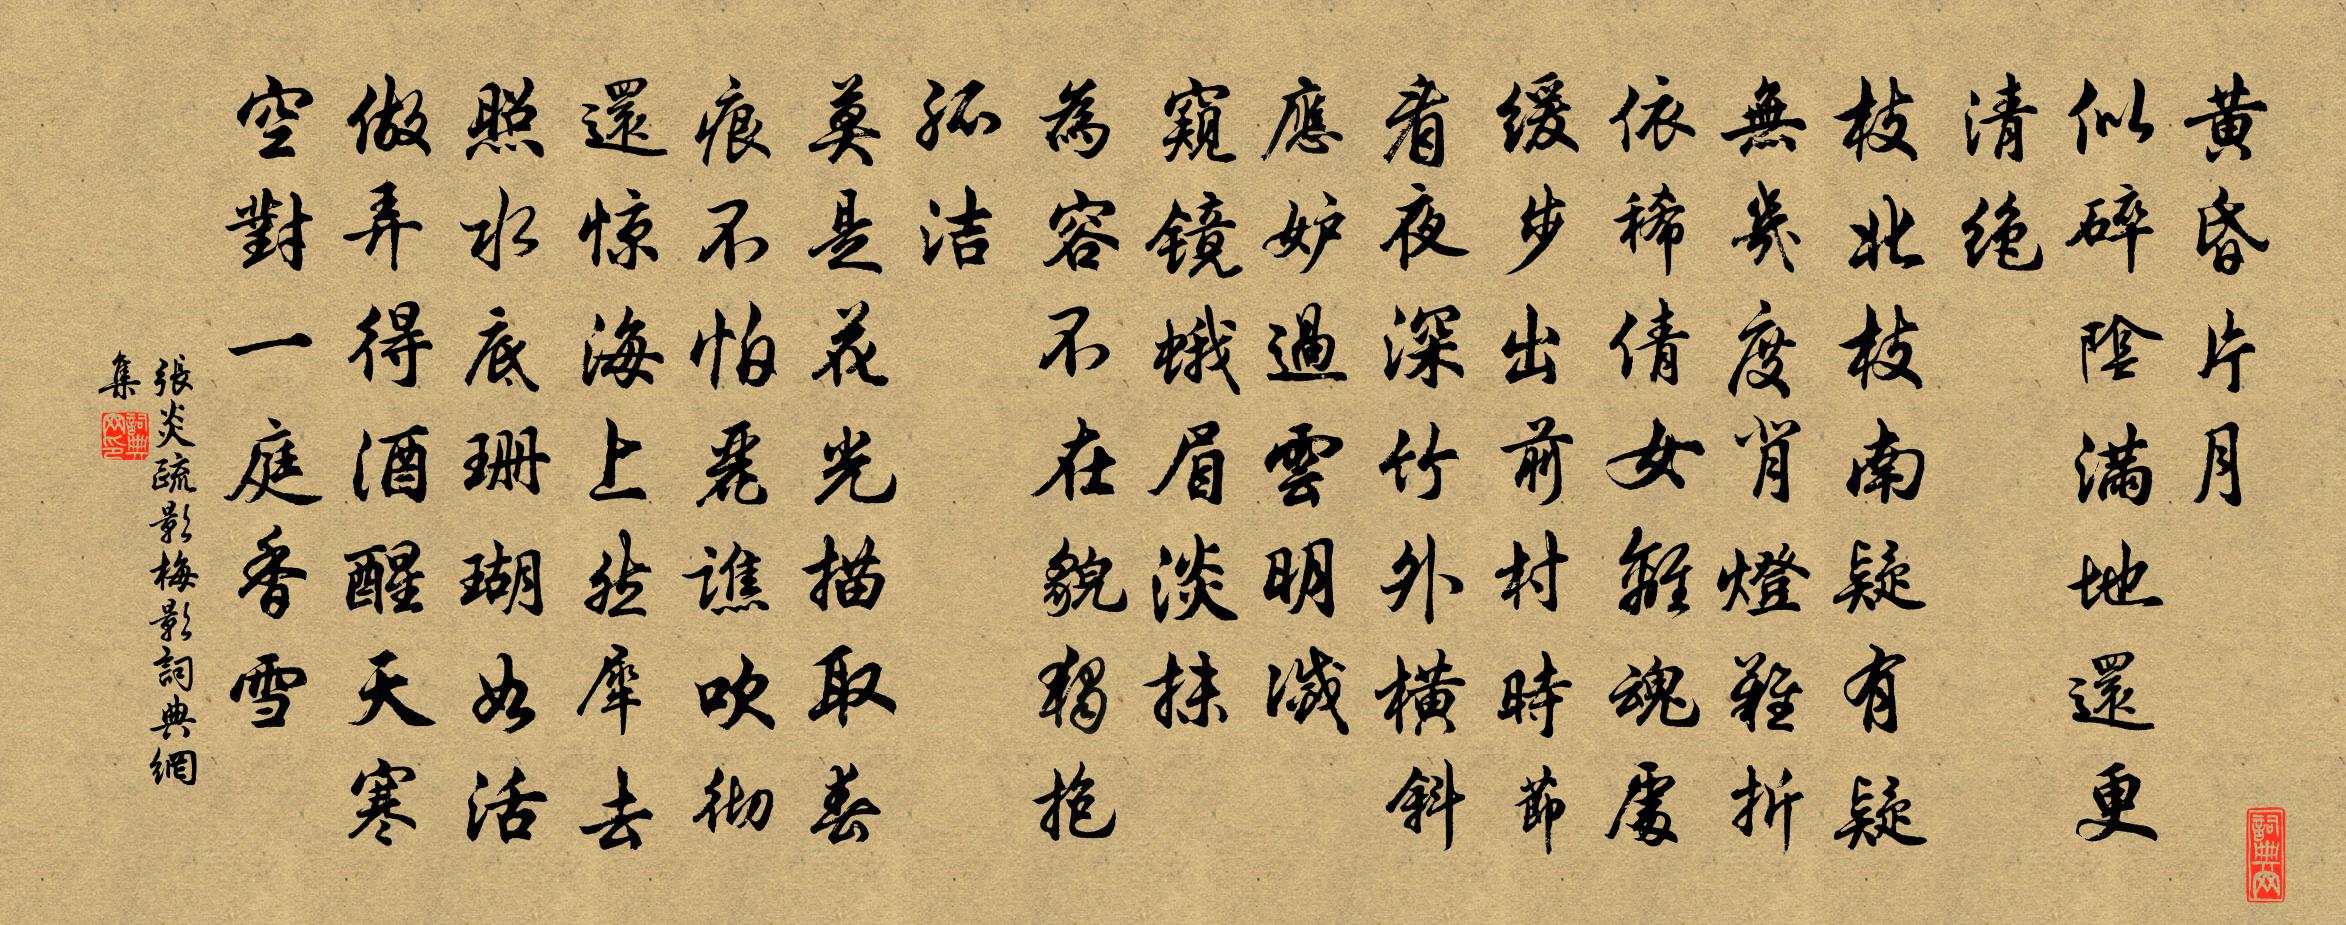 黄昏片月
似碎陰滿地還更
清绝
枝北枝南疑有疑
無幾度背燈難折
依稀倩女離魂處
缓步出前村時節
看夜深竹外横斜
應妒過雲明滅
窺镜蛾眉淡抹
為容不在貌獨抱
孤洁
莫是花光描取春
痕不怕麗譙吹彻
還惊海上然犀去
照水底珊瑚如活
做弄得酒醒天寒
空對一庭香雪
張炎疏影梅影詞典網
集
詞典网印
詞典网